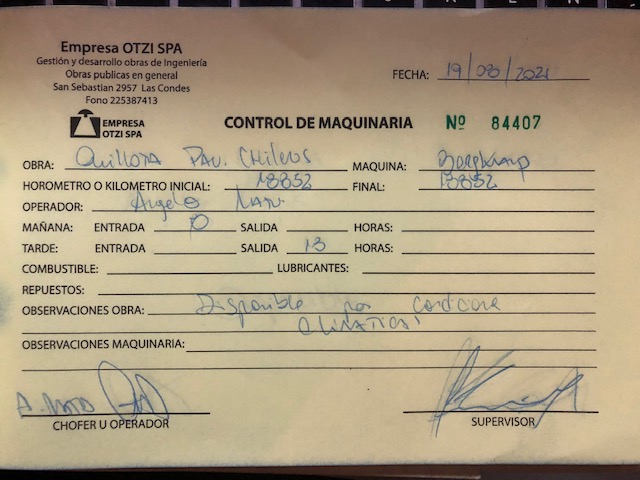 Empresa OTZI SPA
Gestión y desarrollo obras de Ingeniería
Obras publicas en general
San Sebastian 2957 Las Condes
Fono 225387413
FECHA: 19/08/2021
EMPRESA
OTZI SPA
CONTROL DE MAQUINARIA Nº 84407
OBRA: Quillota Pav. Chilenos MAQUINA:
HOROMETRO O KILOMETRO INICIAL: 18852 FINAL: 18852
OPERADOR: Angelo
MAÑANA: ENTRADA 8 SALIDA HORAS:
TARDE: ENTRADA SALIDA 13 HORAS:
COMBUSTIBLE: LUBRICANTES:
REPUESTOS:
OBSERVACIONES OBRA: Disponible por
OBSERVACIONES MAQUINARIA:
CHOFER U OPERADOR
SUPERVISOR